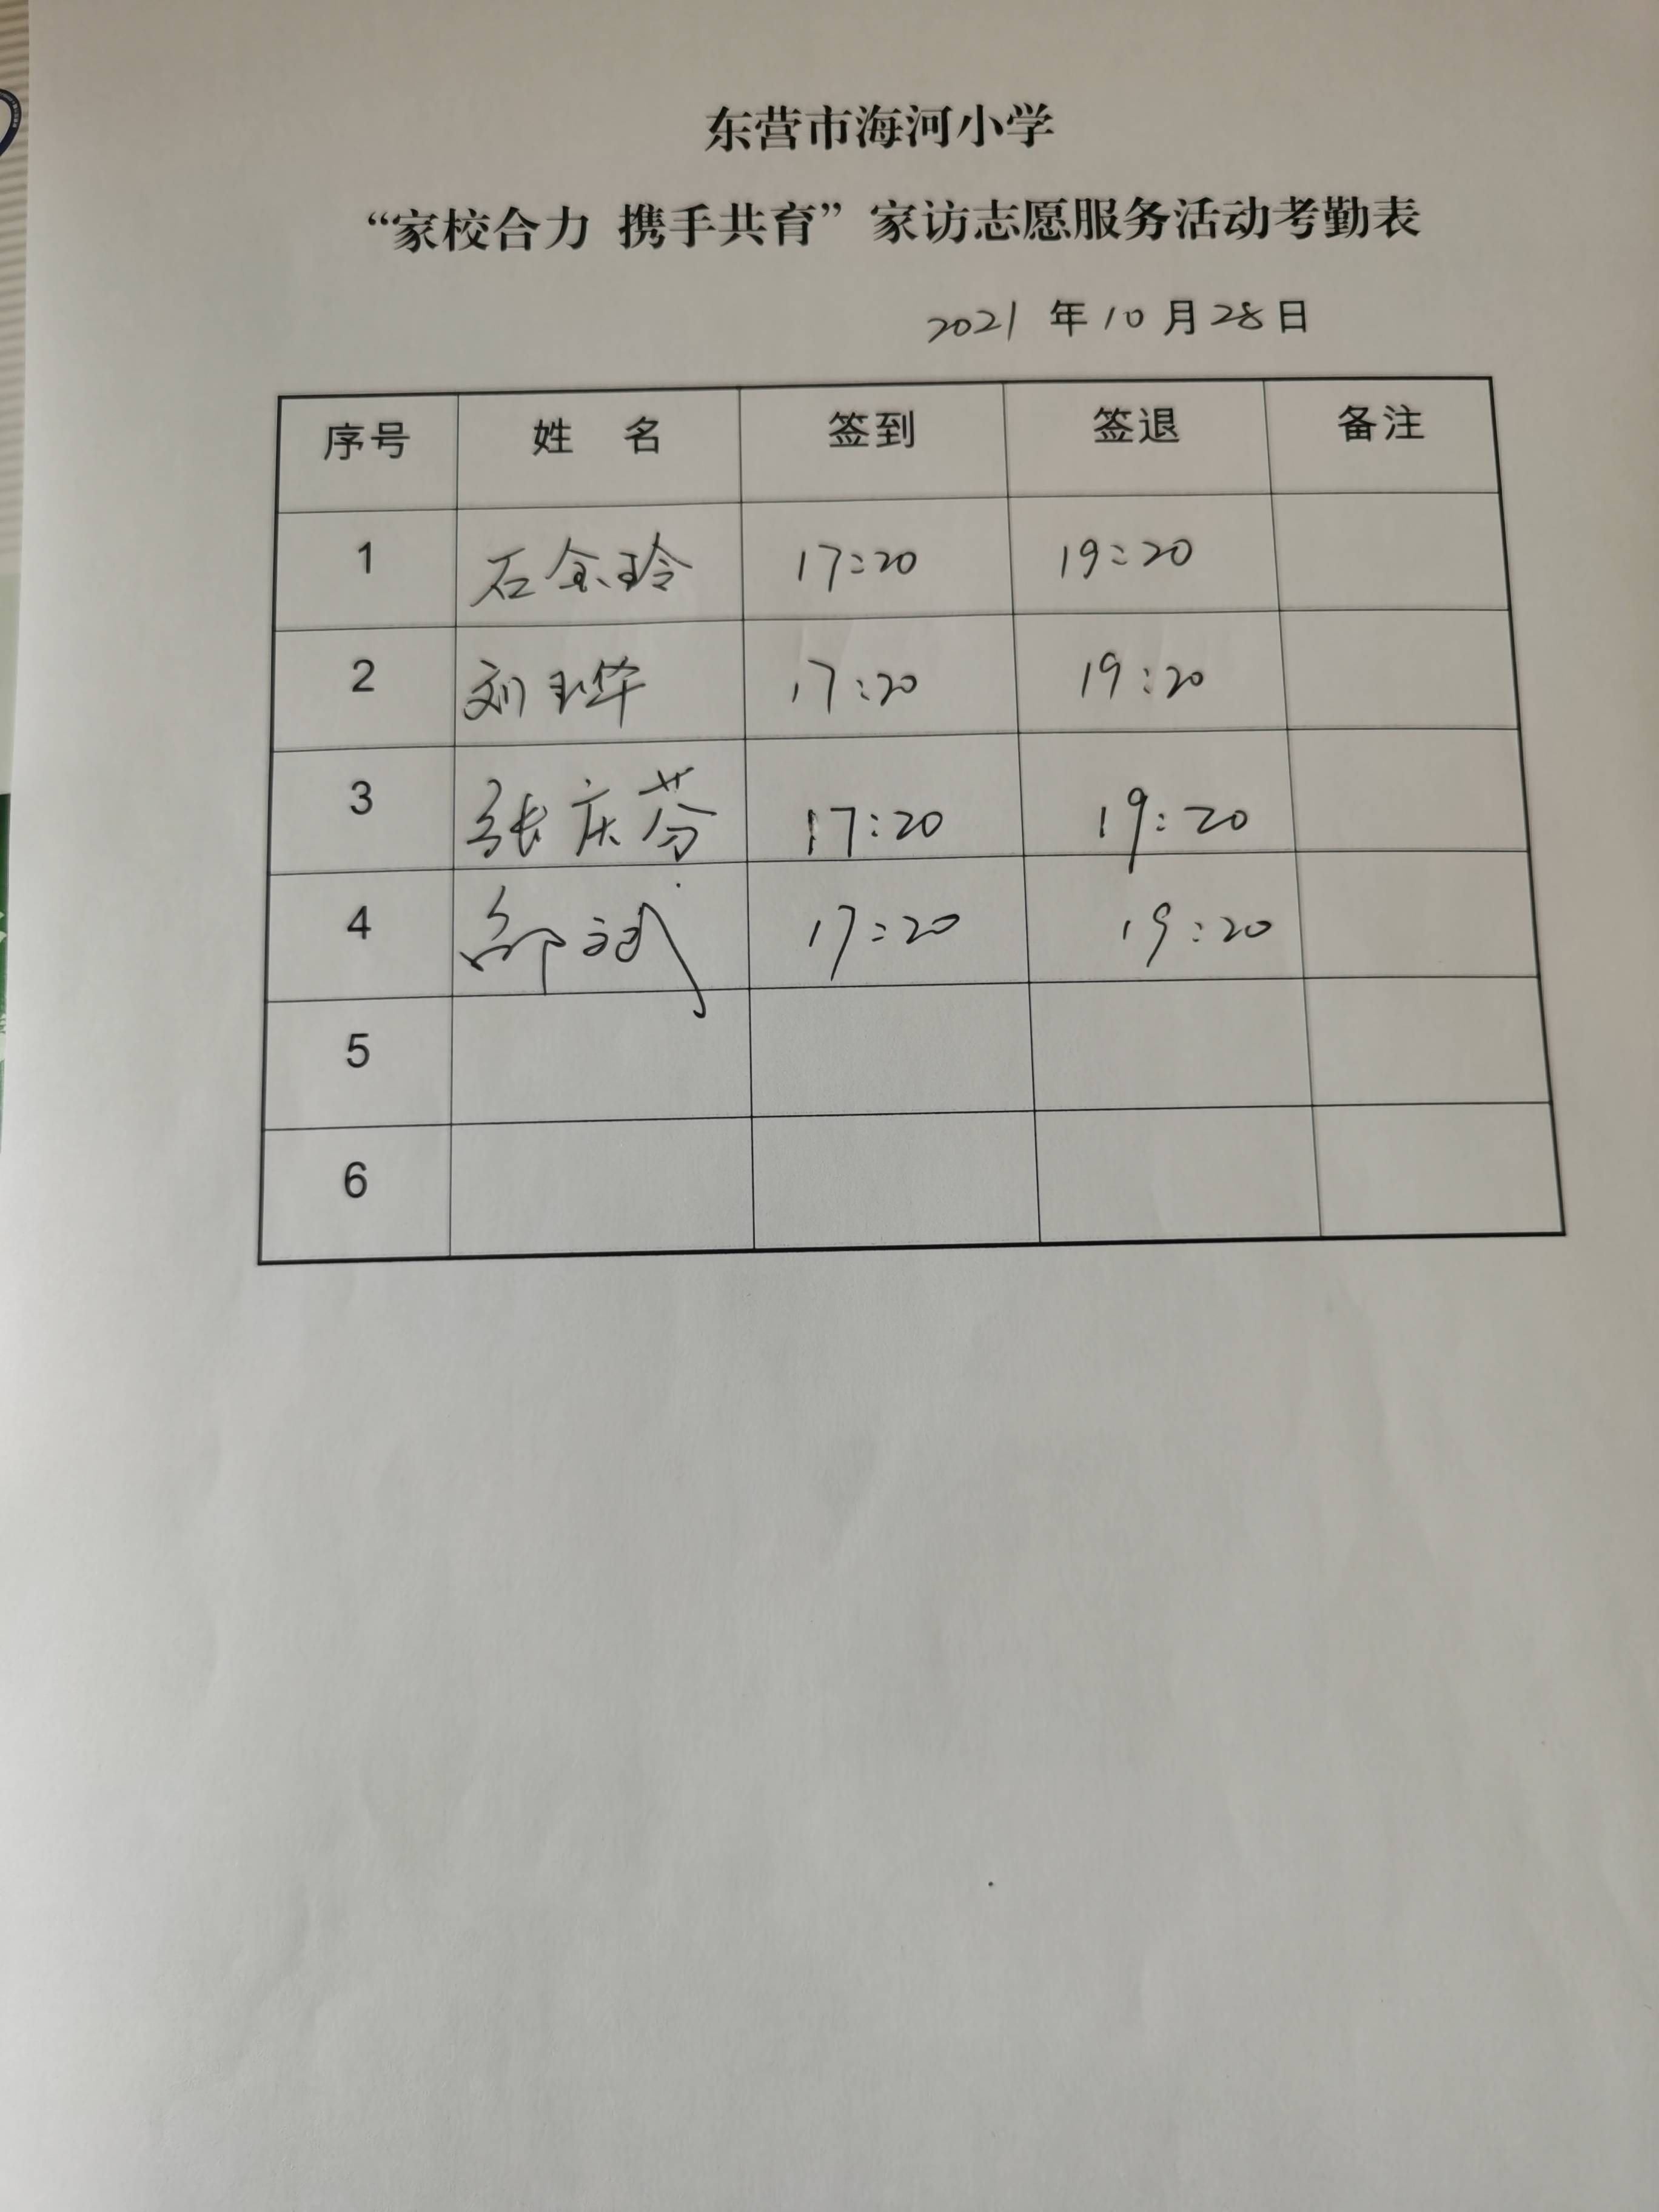 东营市海河小学
“家校合力 携手共育”家访志愿服务活动考勤表
2021 年 10 月 28 日
序号 姓 名 签到 签退 备注
1 石金玲 17:20 19:20
2 刘玉华 17:20 19:20
3 张庆芬 17:20 19:20
4 17:20 19:20
5
6